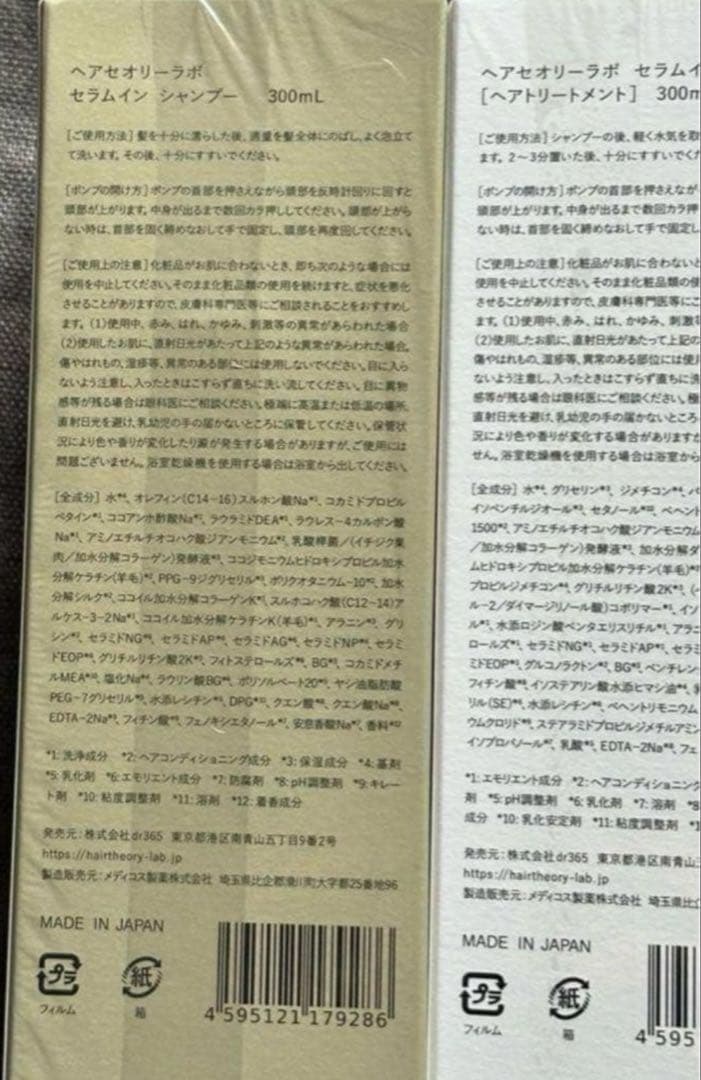 ヘアセオリーラボ
セラムイン シャンプー 300mL
[ご使用方法] 髪を十分に濡らした後、適量を髪全体にのばし、よく泡立て
て洗います。その後、十分にすすいでください。
[ポンプの開け方] ポンプの首部を押さえながら頭部を反時計回りに回すと
頭部が上がります。中身が出るまで数回カラ押ししてください。頭部が上がら
ない時は、首部を固く締めなおして手で固定し、頭部を再度回してください。
[ご使用上の注意] 化粧品がお肌に合わないとき、即ち次のような場合には
使用を中止してください。そのまま化粧品類の使用を続けますと、症状を悪化
させることがありますので、皮膚科専門医等にご相談されることをおすすめし
ます。(1)使用中、赤み、はれ、かゆみ、刺激等の異常があらわれた場合
(2)使用したお肌に、直射日光があたって上記のような異常があらわれた場合。
傷やはれもの、湿疹等、異常のある部位には使用しないでください。目に入ら
ないよう注意し、入ったときはこすらず直ちに洗い流してください。目に異物
感等が残る場合は眼科医にご相談ください。極端に高温または低温の場所、
直射日光を避け、乳幼児の手の届かないところに保管してください。保管状
況により色や香りが変化したり澱が発生する場合がありますが、ご使用には
問題ございません。浴室乾燥機を使用する場合は浴室から出してください。
[全成分] 水*4、オレフィン(C14-16)スルホン酸Na*1、コカミドプロピル
ベタイン*1、ココアンホ酢酸Na*1、ラウラミドDEA*1、ラウレス-4カルボン酸
Na*1、アミノエチルチオコハク酸ジアンモニウム*2、乳酸桿菌/(イチジク果
肉/加水分解コラーゲン)発酵液*3、ココジモニウムヒドロキシプロピル加水
分解ケラチン(羊毛)*2、PPG-9ジグリセリル*3、ポリクオタニウム-10*2、加水
分解シルク*2、ココイル加水分解コラーゲンK*1、スルホコハク酸(C12-14)ア
ルケス-3-2Na*1、ココイル加水分解ケラチンK(羊毛)*1、アラニン*3、グリ
シン*3、セラミドNG*6、セラミドAP*6、セラミドAG*6、セラミドNP*6、セラミ
ドEOP*6、グリチルリチン酸2K*3、フィトステロールズ*6、BG*3、コカミドメチ
ルMEA*10、塩化Na*4、ラウリン酸BG*6、ポリソルベート20*5、ヤシ油脂肪酸
PEG-7グリセリル*5、水添レシチン*5、DPG*11、クエン酸*8、クエン酸Na*8、
EDTA-2Na*9、フィチン酸*9、フェノキシエタノール*7、安息香酸Na*7、香料*12
*1:洗浄成分 *2:ヘアコンディショニング成分 *3:保湿成分 *4:基剤
*5:乳化剤 *6:エモリエント成分 *7:防腐剤 *8:pH調整剤 *9:キレー
ト剤 *10:粘度調整剤 *11:溶剤 *12:着香成分
発売元:株式会社dr365 東京都港区南青山五丁目9番2号
https://hairtheory-lab.jp
製造販売元:メディコス製薬株式会社 埼玉県比企郡滑川町大字都25番地96
MADE IN JAPAN
プラ
フィルム
紙
箱
4 595121 179286
ヘアセオリーラボ セラムイ
[ヘアトリートメント] 300m
[ご使用方法] シャンプーの後、軽く水気を取
ます。2〜3分置いた後、十分にすすいでくだ
[ポンプの開け方] ポンプの首部を押さえなが
頭部が上がります。中身が出るまで数回カラ押
ない時は、首部を固く締めなおして手で固定し
[ご使用上の注意] 化粧品がお肌に合わないと
使用を中止してください。そのまま化粧品類の使
させることがありますので、皮膚科専門医等にこ
ます。(1)使用中、赤み、はれ、かゆみ、刺激
(2)使用したお肌に、直射日光があたって上記の
傷やはれもの、湿疹等、異常のある部位には使用
ないよう注意し、入ったときはこすらず直ちに洗
感等が残る場合は眼科医にご相談ください。極
直射日光を避け、乳幼児の手の届かないところ
況により色や香りが変化する場合がありますが
せん。浴室乾燥機を使用する場合は浴室から
[全成分] 水*4、グリセリン*3、ジメチコン*4、
イソペンチルジオール*3、セタノール*10、ベヘント
1500*2、アミノエチルチオコハク酸ジアンモニウム
/加水分解コラーゲン)発酵液*3、加水分解ダ
ムヒドロキシプロピル加水分解ケラチン(羊毛)*2
プロピルジメチコン*4、グリチルリチン酸2K*3、
ル-2/ダイマージリノール酸)コポリマー*1、イソ
ル*1、水添ロジン酸ペンタエリスリチル*1、アラニ
ロールズ*1、セラミドNG*1、セラミドAP*1、セラミ
ミドEOP*1、グルコノラクトン*3、BG*3、ペンチレン
フィチン酸*8、イソステアリン酸水添ヒマシ油*4、
リル(SE)*6、水添レシチン*6、ベヘントリモニウム
ウムクロリド*6、ステアラミドプロピルジメチルアミン
イソプロパノール*7、乳酸*5、EDTA-2Na*8、フェ
*1:エモリエント成分 *2:ヘアコンディショニング
剤 *5:pH調整剤 *6:乳化剤 *7:溶剤 *8
成分 *10:乳化安定剤 *11:粘度調整剤
発売元:株式会社dr365 東京都港区南青山
https://hairtheory-lab.jp
製造販売元:メディコス製薬株式会社 埼玉県比
MADE IN JAPAN
プラ
フィルム
紙
箱
4 595